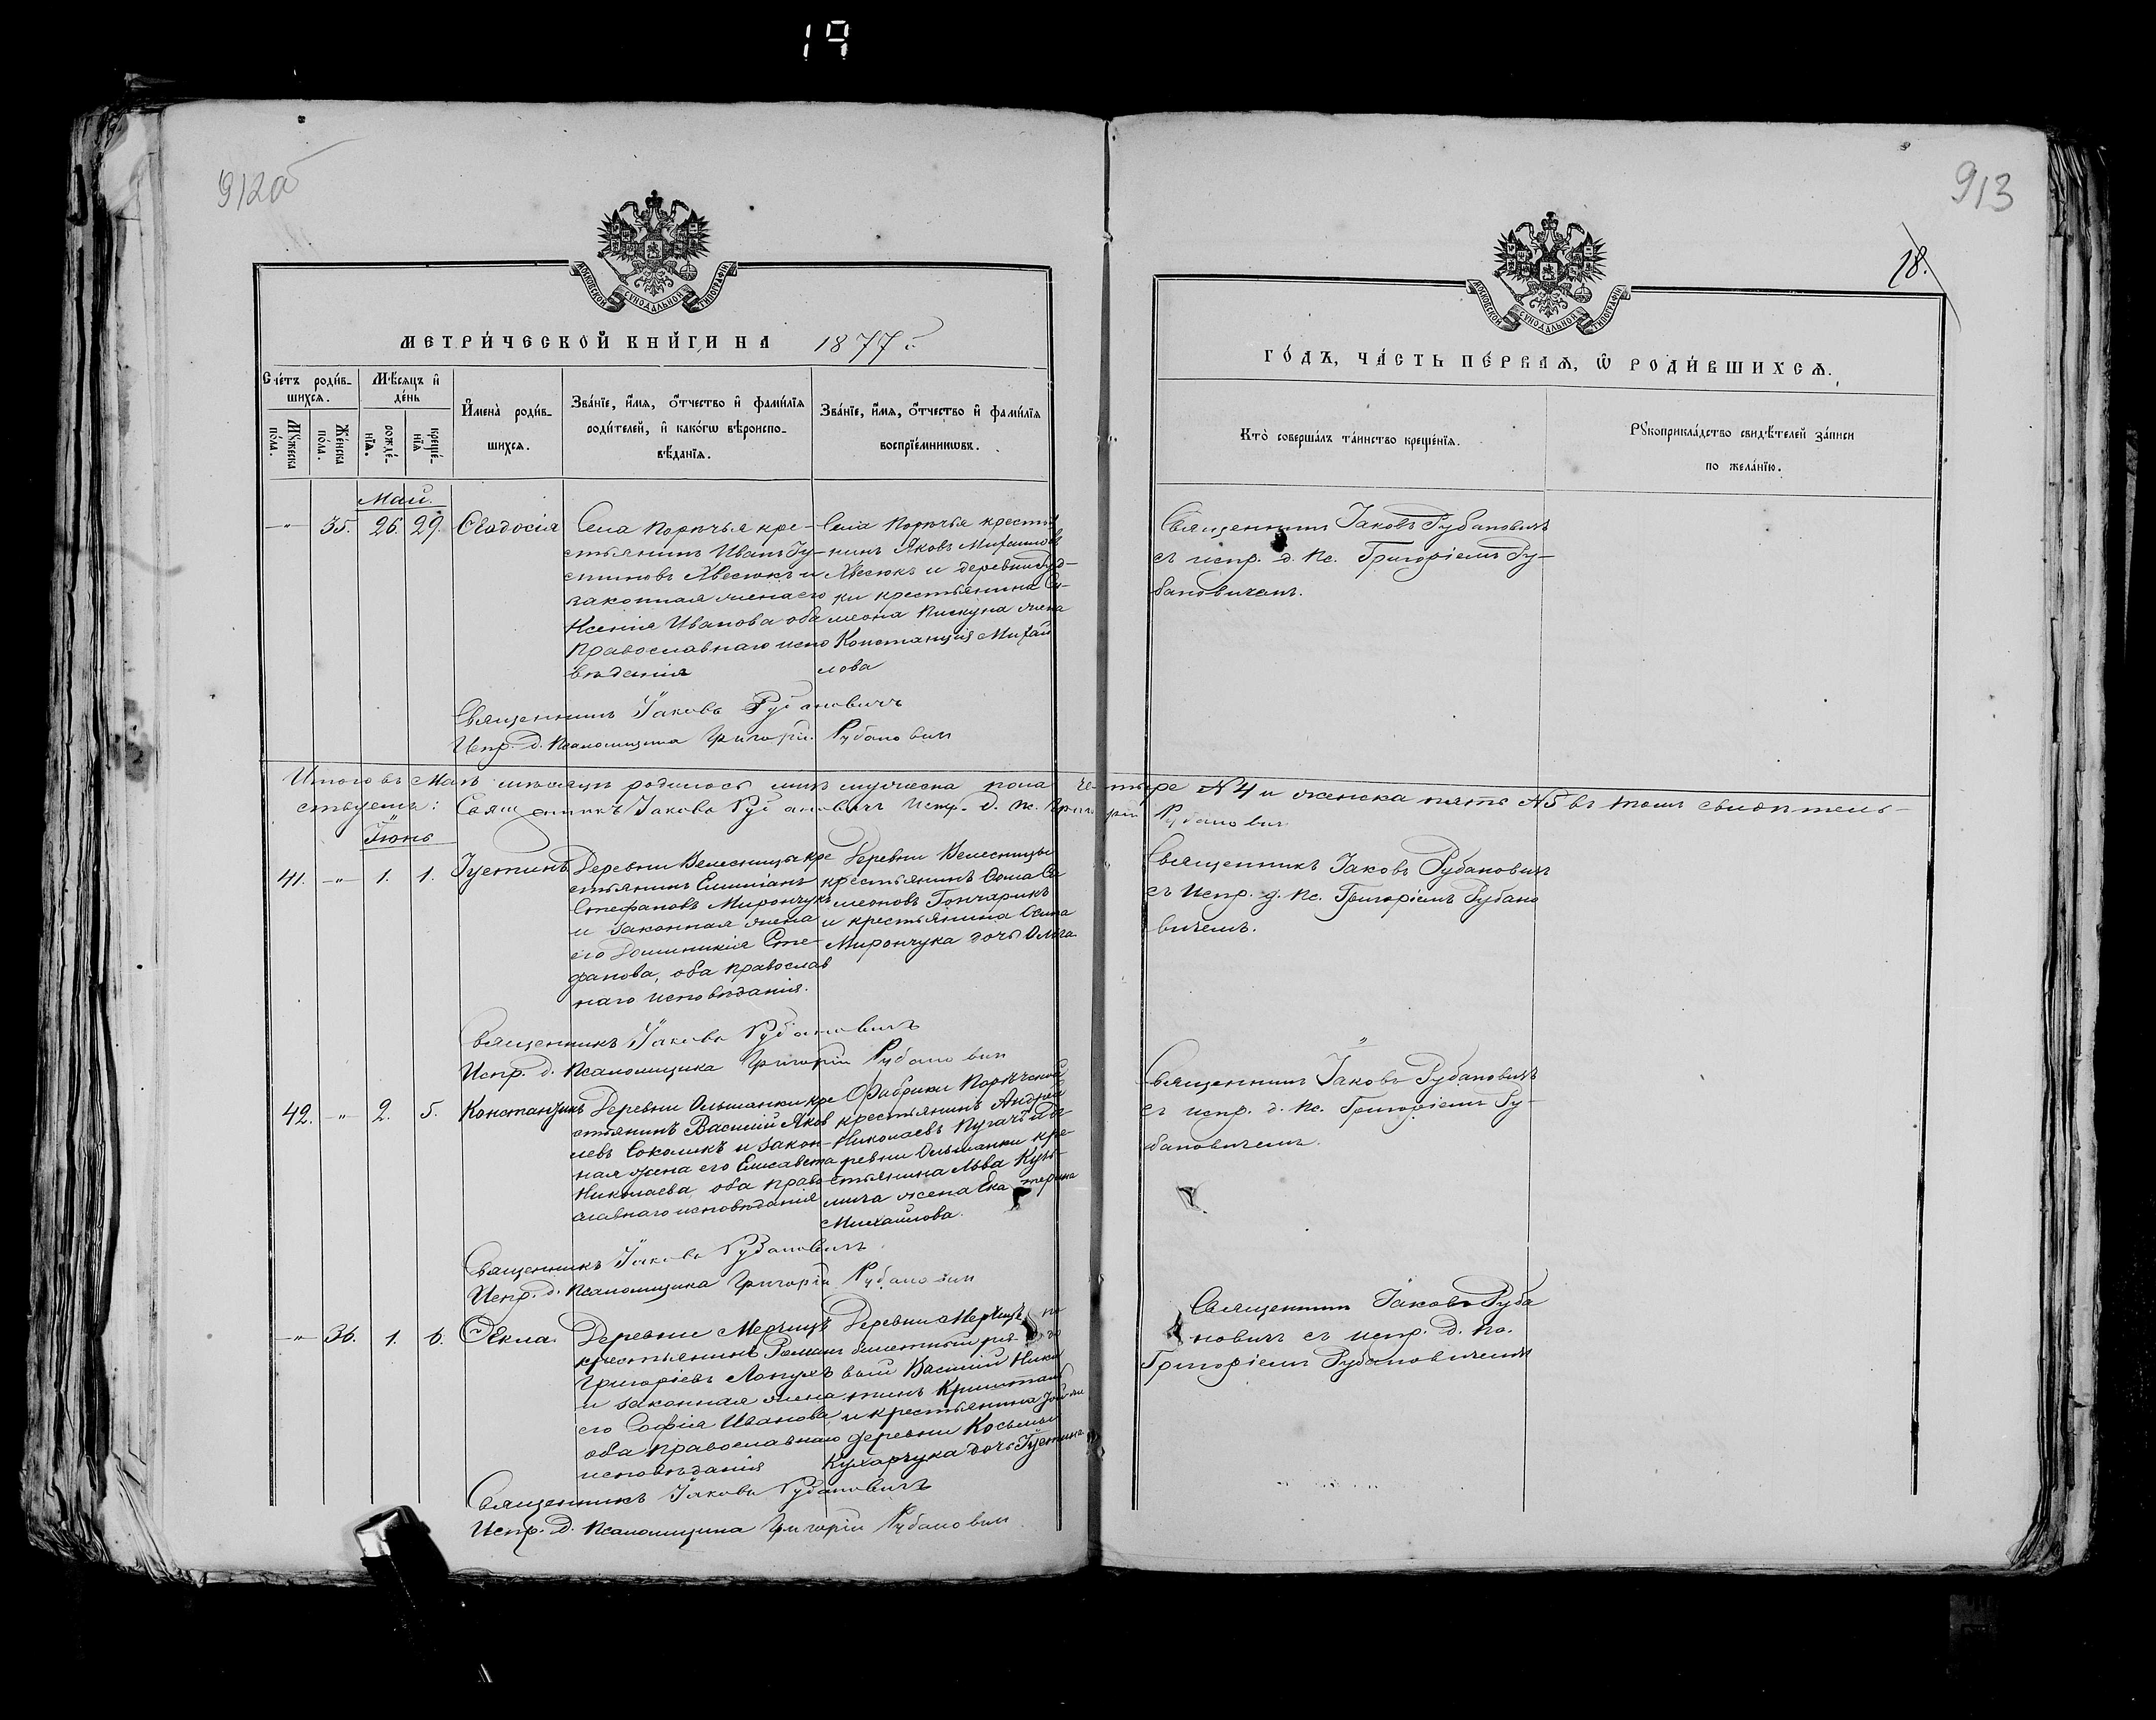 19
912об
913
18.
МОСКОВСКОЙ СѴНОДАЛЬНОЙ ТИПОГРАФІИ
МОСКОВСКОЙ СѴНОДАЛЬНОЙ ТИПОГРАФІИ
МЕТРИ́ЧЕСКОЙ КНИ́ГИ НА 1877 г.
Сче́тъ роди́в-
шихсѧ.
Мѣ́сѧцъ и҆
де́нь
Мꙋ́жеска по́ла.
Же́нска по́ла.
рожде́-
нїѧ.
креще́-
нїѧ
И҆мена̀ роди́в-
шихсѧ.
Зва́нїе, и҆́мѧ, ѻ҆́тчество и҆ фами́лїѧ
роди́телей, и҆ како́гѡ вѣроиспо-
вѣ́данїѧ.
Зва́нїе, и҆́мѧ, ѻ҆́тчество и҆ фами́лїѧ
воспрїе́мникѡвъ.
ГО́ДЪ, ЧА́СТЬ ПЕ́РВАѦ, Ѽ РОДИ́ВШИХСѦ.
Кто̀ соверша́лъ та́инство креще́нїѧ.
Рꙋкоприкла́дство свидѣ́телей за́писи
по жела́нїю.
Май.
–"– 35. 26. 29. Ѳеодосія
Села Порѣчья кре-
стьянинъ Иванъ Іу-
стиновъ Хвесюкъ и
законная жена его
Ксенія Иванова оба
православнаго испо
вѣданія
Села Порѣчья крестья
нинъ Яковъ Михаиловъ
Хвесюкъ и деревни Суд-
ки крестьянина Си-
меона Пискуна жена
Констанція Михаи
лова
Священникъ Іаковъ Рубановичъ
съ испр. д. пс. Григоріемъ Ру-
бановичемъ.
Священникъ Іаковъ Рубановичъ
Испр. д. Псаломщика Григорій Рубанович
Итого въ Маѣ мѣсяцѣ родилось мужеска пола четыре №4 и женска пять №5 въ томъ свидѣтель-
ствуемъ: Священникъ Іаковъ Рубановичъ Испр. д. Пс. Григорій Рубанович
Іюнь
41. –"– 1. 1. Іустинъ
Деревни Велесницы кре
стьянинъ Емиліанъ
Стефановъ Мирончукъ
и законная жена
его Доминикія Сте-
фанова, оба православ
наго исповѣданія.
Деревни Велесницы
крестьянинъ Ѳома Си
меоновъ Гончарикъ
и крестьянина Осипа
Мирончука дочь Ольга
Священникъ Іаковъ Рубановичъ
съ Испр. д. пс. Григоріемъ Рубано
вичемъ.
Священникъ Іаковъ Рубановичъ
Испр. д. Псаломщика Григорій Рубанович
42. –"– 2. 5. Константинъ
Деревни Ольшанки кре
стьянинъ Василій Яков
левъ Соколикъ и закон-
ная жена его Елисавета
Николаева, оба право
славнаго исповѣданія
Фабрики Порѣчской
крестьянинъ Андрей
Николаевъ Пугачъ и де
ревни Ольшанки кре-
стьянина Льва Кузь-
мича жена Екатерина
Михаилова.
Священникъ Іаковъ Рубановичъ
съ испр. д. пс. Григоріемъ Ру-
бановичемъ.
Священникъ Іаковъ Рубановичъ
Испр. д. Псаломщика Григорій Рубанович
–"– 36. 1. 6. Ѳекла.
Деревни Мерчицъ
крестьянинъ Романъ
Григоріевъ Лопухъ
и законная жена
его Софія Иванова
оба православнаго
исповѣданія
Деревни Мерчицъ
билетный рядо
вый Василій Ники
тинъ
и крестьянина
деревни Косьмы
Кухарчука дочь Іустина
Священникъ Іаковъ Руба
новичъ съ испр. д. пс.
Григоріемъ Рубановичемъ
Священникъ Іаковъ Рубановичъ
Испр. д. Псаломщика Григорій Рубанович